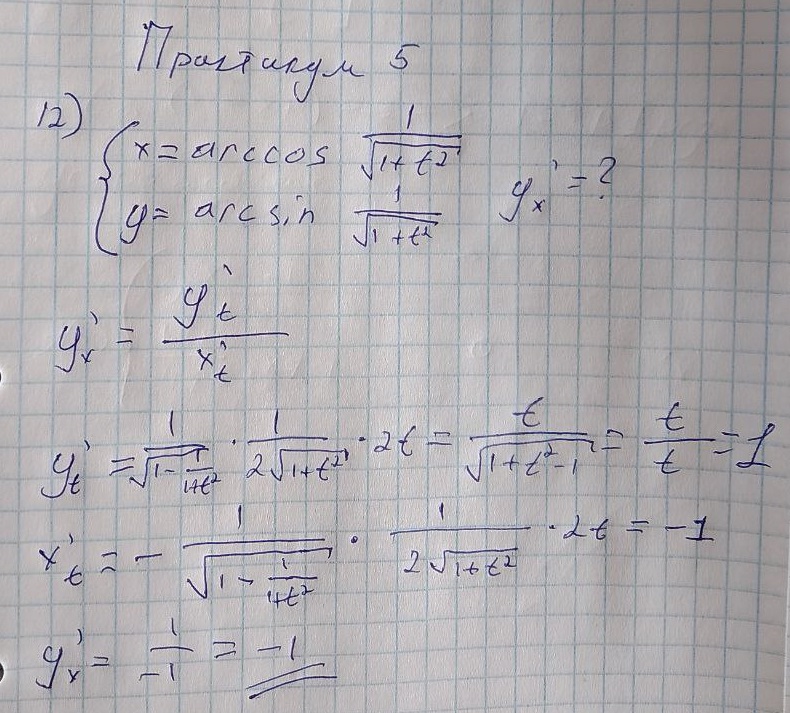 Практикум 5
12) { x = arccos 1/√(1+t²)
y = arcsin 1/√(1+t²) y'ₓ = ?
y'ₓ = y'ₜ / x'ₜ
y'ₜ = 1/√(1 - 1/(1+t²)) · 1/(2√(1+t²)) · 2t = t/√(1+t²-1) = t/t = 1
x'ₜ = - 1/√(1 - 1/(1+t²)) · 1/(2√(1+t²)) · 2t = -1
y'ₓ = 1/-1 = -1